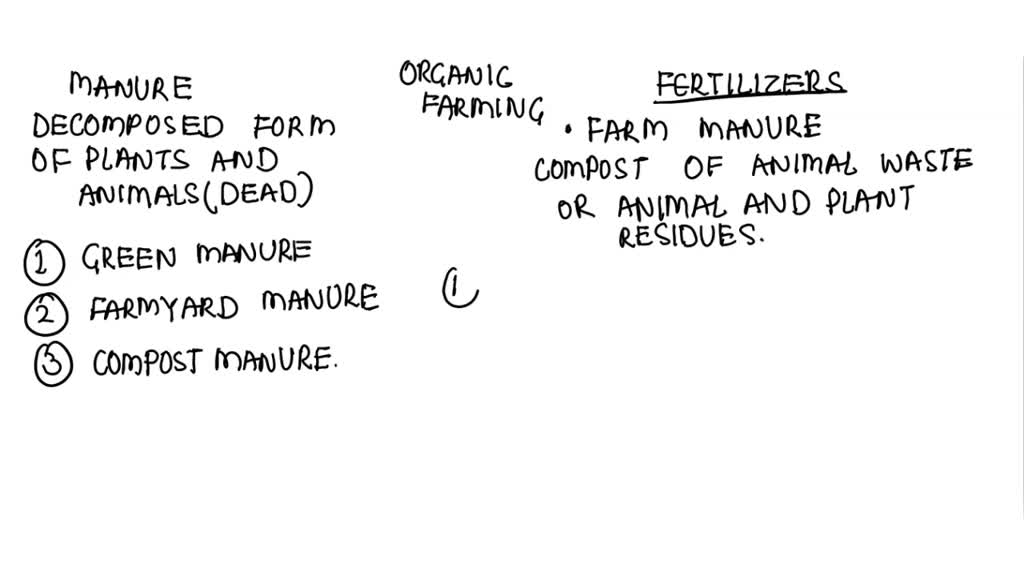 MANURE
DECOMPOSED FORM
OF PLANTS AND
ANIMALS (DEAD)
① GREEN MANURE
② FARMYARD MANURE
③ COMPOST MANURE.
ORGANIC
FARMING
①
FERTILIZERS
• FARM MANURE
COMPOST OF ANIMAL WASTE
OR ANIMAL AND PLANT
RESIDUES.